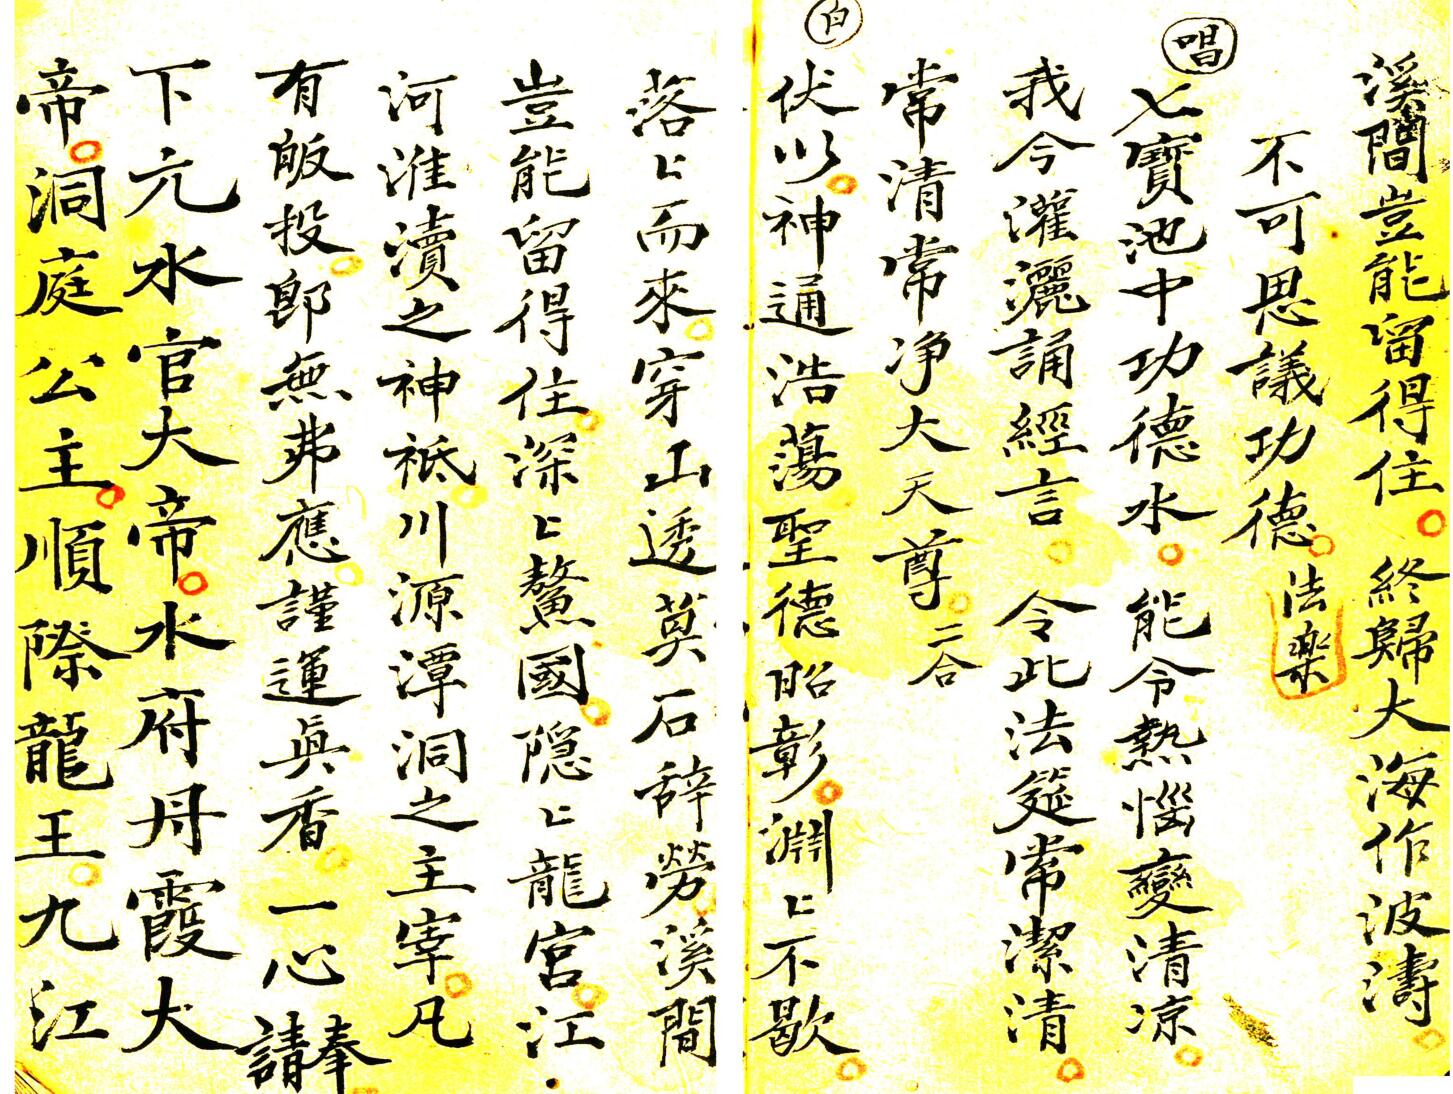 溪間豈能留得住終歸大海作波濤
不可思議功德法樂
唱
七寶池中功德水能令熱惱變清凉
我今灌灑誦經言令此法筵常潔清
常清常净大天尊二合
白
伏以神通浩蕩聖德昭彰淵〻不歇
落〻而來穿山透莫石辞勞溪間
豈能留得住深〻鰲國隠〻龍宮江
河淮瀆之神祗川源潭洞之主宰凡
有皈投郎無弗應謹運眞香一心奉請
下元水官大帝水府丹霞大
帝洞庭公主順際龍王九江